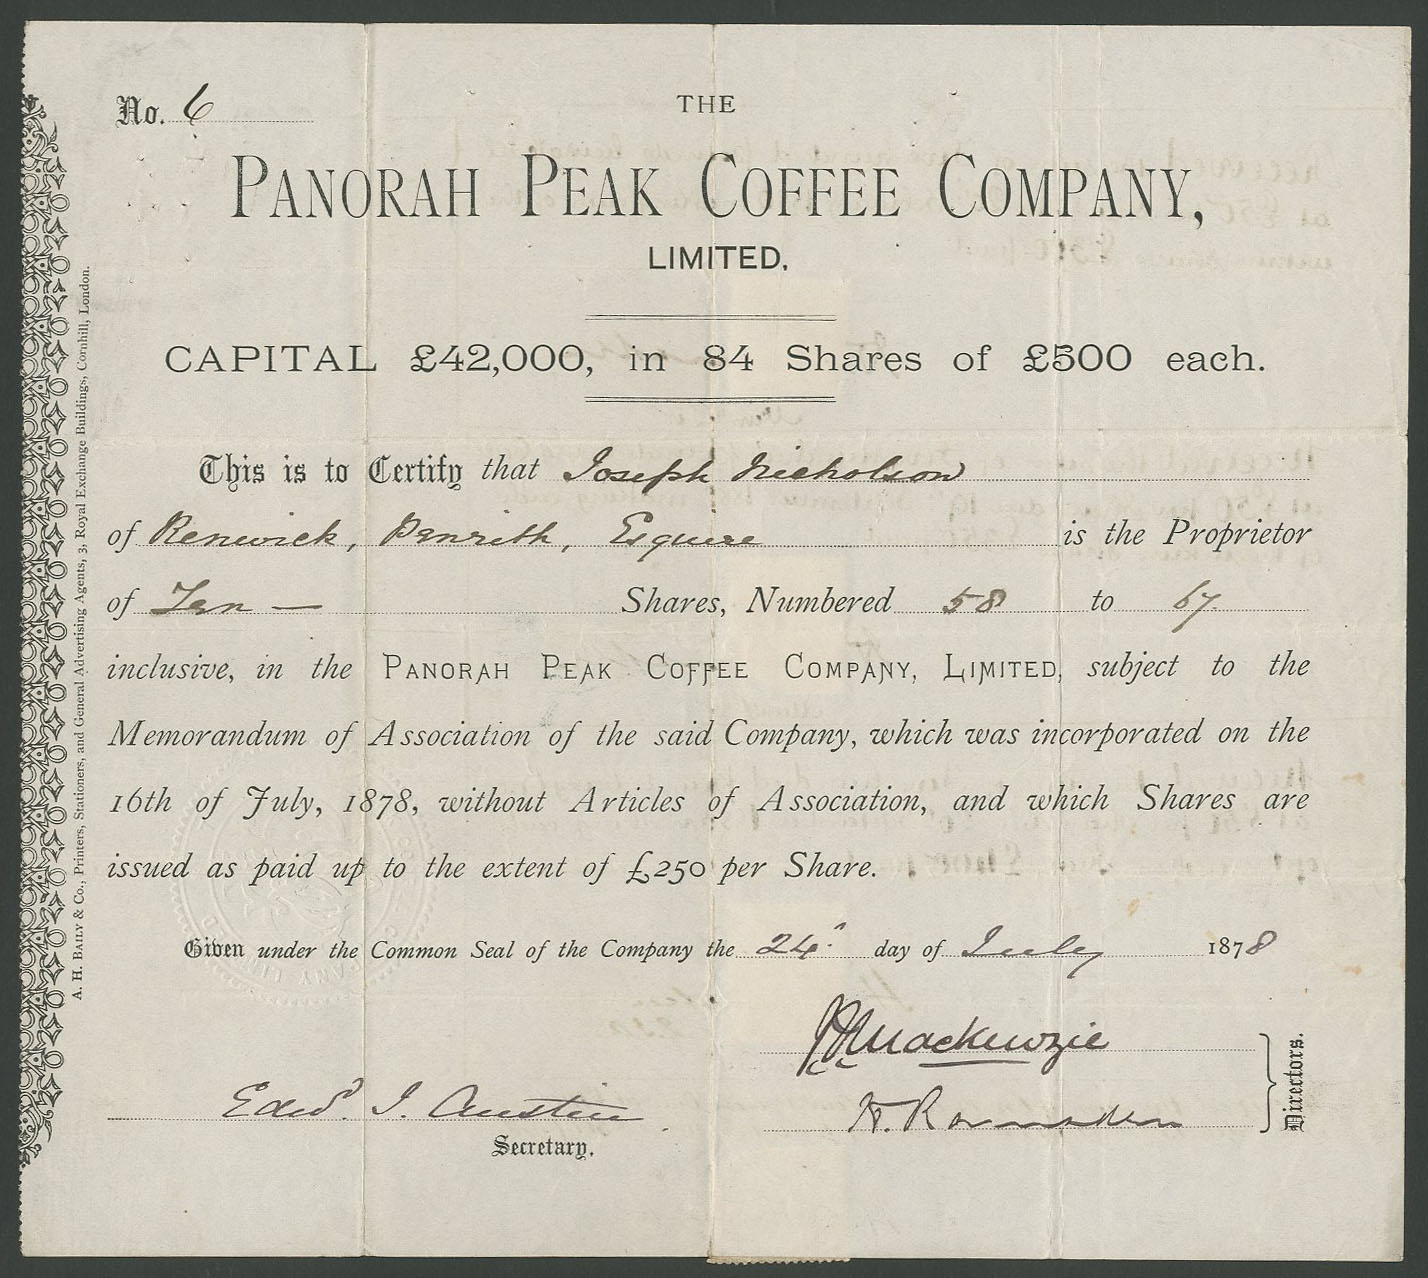 No. 6
THE
PANORAH PEAK COFFEE COMPANY,
LIMITED.
CAPITAL £42,000, in 84 Shares of £500 each.
This is to Certify that Joseph Nicholson
of Renwick, Penrith, Esquire is the Proprietor
of Ten — Shares, Numbered 58 to 67
inclusive, in the PANORAH PEAK COFFEE COMPANY, LIMITED, subject to the
Memorandum of Association of the said Company, which was incorporated on the
16th of July, 1878, without Articles of Association, and which Shares are
issued as paid up to the extent of £250 per Share.
Given under the Common Seal of the Company the 24th day of July 1878
Mackenzie
Edwd. J. Austin
Secretary.
Directors.
A. H. BAILY & Co., Printers, Stationers, and General Advertising Agents, 3, Royal Exchange Buildings, Cornhill, London.